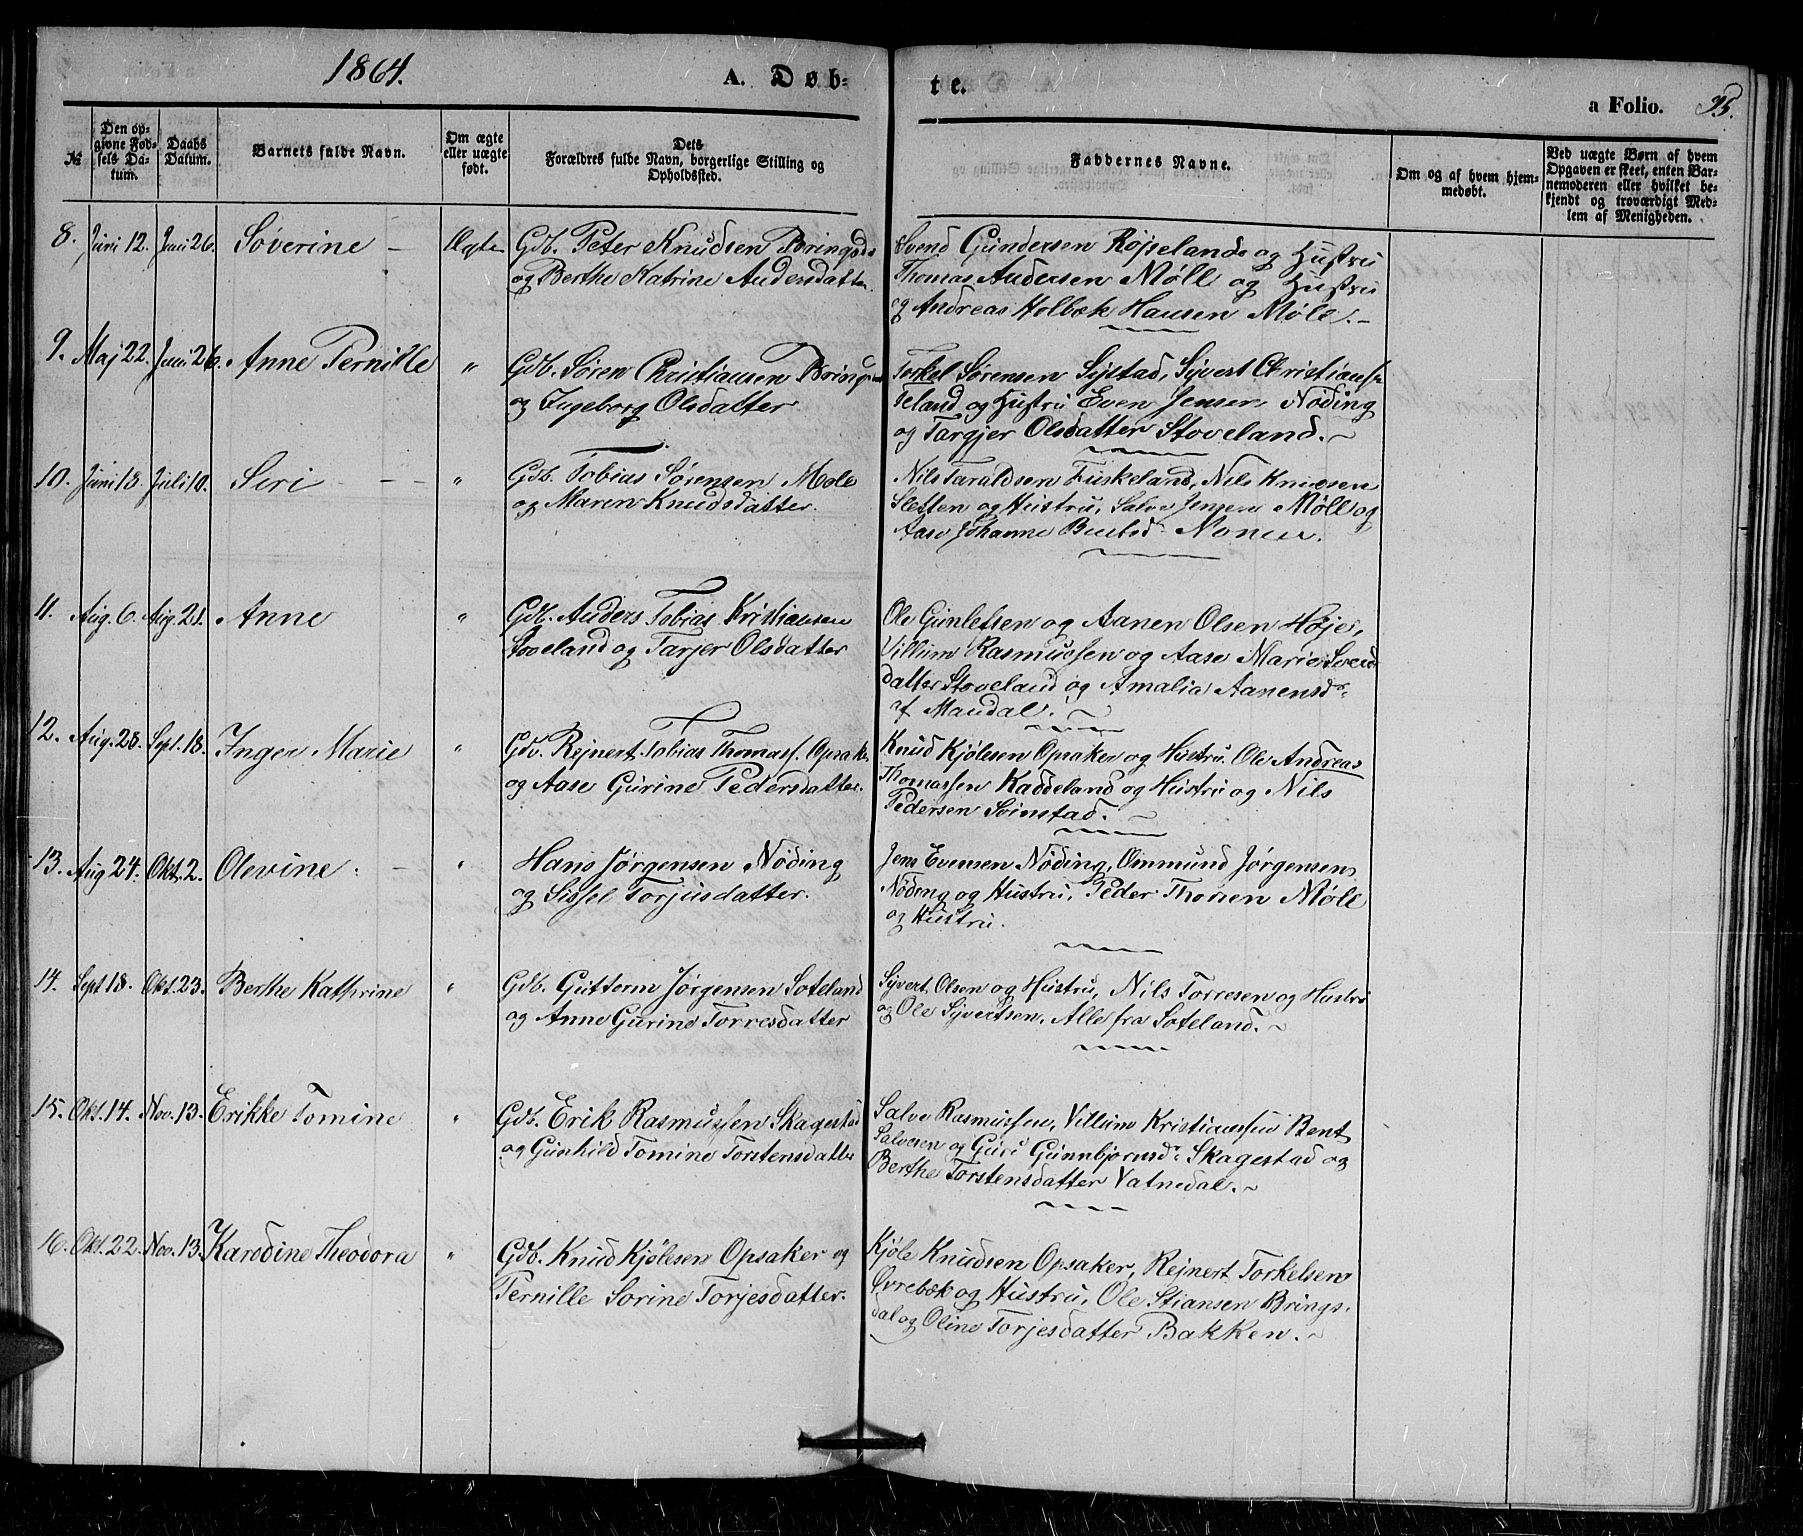 1864.
A. Døb-
te.
a Folio. 25.
№
Den op-
givne Fød-
sels Da-
tum.
Daabs
Datum.
Barnets fulde Navn.
Om ægte
eller uægte
født.
Dets
Forældres fulde Navn, borgerlige Stilling og
Opholdssted.
Faddernes Navne.
Om og af hvem hjem-
medøbt.
Ved uægte Børn af hvem
Opgaven er skeet, enten Bar-
nemoderen eller hvilket be-
kjendt og troværdigt Med-
lem af Menigheden.
8. Juni 12. Juni 26. Søverine – Ægte Gdb. Peter Knudsen Bringsd.
og Berthe Katrine Andersdatter.
Svend Gundersen Røjselands og Hustru
Thomas Andersen Møll og Hustru
og Andreas Holbæk Hansen Møle. –
9. Maj 22. Juni 26. Anne Pernille " Gdb. Søren Christiansen Bringsd
og Ingeborg Olsdatter.
Torkel Sørensen Sijstad, Sijvert Christians.
Teland og Hustru Even Jensen Nöding
og Targjer Olsdatter Stoveland. ~
10. Juni 18. Juli 10. Siri – – – " Gdb. Tobias Sørensen Møle
og Maren Knudsdatter.
Nils Taraldsen Fuskeland, Nils Knudsen
Sletten og Hustru, Salve Jensen Møll og
Aase Johanne Bentsd. Nomen.
11. Aug. 6. Aug. 21. Anne " Gdb. Anders Tobias Kristiansen
Stoveland og Tarjer Olsdatter
Ole Gunletsen og Aanen Olsen Høje,
Villum Rasmussen og Aase Marie Svend
datter Stoveland og Amalia Aanensdr.
af Mandal. ~
12. Aug. 28. Sept. 18. Inger Marie " Gdb. Rejnert Tobias Thomass. Opsaker
og Aase Gurine Pedersdatter.
Knud Kjølesen Opsaker og Hustru. Ole Andreas
Thomassen Kaddeland og Hustru og Nils
Pedersen Svinstad. ~
13. Aug 24. Okt. 2. Olevine. – " Hans Jørgensen Nöding
og Sissel Torjusdatter.
Jens Evensen Nöding, Ommund Jörgensen
Nöding og Hustru, Peder Thorsen Møle
og Hustru.
14. Sept 18. Okt. 23. Berthe Kathrine " Gdb. Guttorm Jørgensen Soteland
og Anne Gurine Torresdatter
Sijvert Olsen og Hustru, Nils Torresen og Hustru
og Ole Sijvertsen. Alle fra Soteland. ~
15. Okt. 14. Nov. 13. Erikke Tomine " Gdb. Erik Rasmussen Skagestad
og Gunhild Tomine Torstensdatter
Salve Rasmussen, Villum Kristianssen Bent
Salvesen og Guri Gunnbjørnsd. Skagestad og
Berthe Torstensdatter Vatnedal. ~
16. Okt. 22. Nov. 13. Karodine Theodora " Gdb. Knud Kjölesen Opsaker og
Pernille Sorine Torjesdatter.
Kjøle Knudsen Opsaker, Rejnert Torkelsen
Øvrebøk og Hustru, Ole Stiansen Brings.
dal og Oline Torjesdatter Bakken. ~